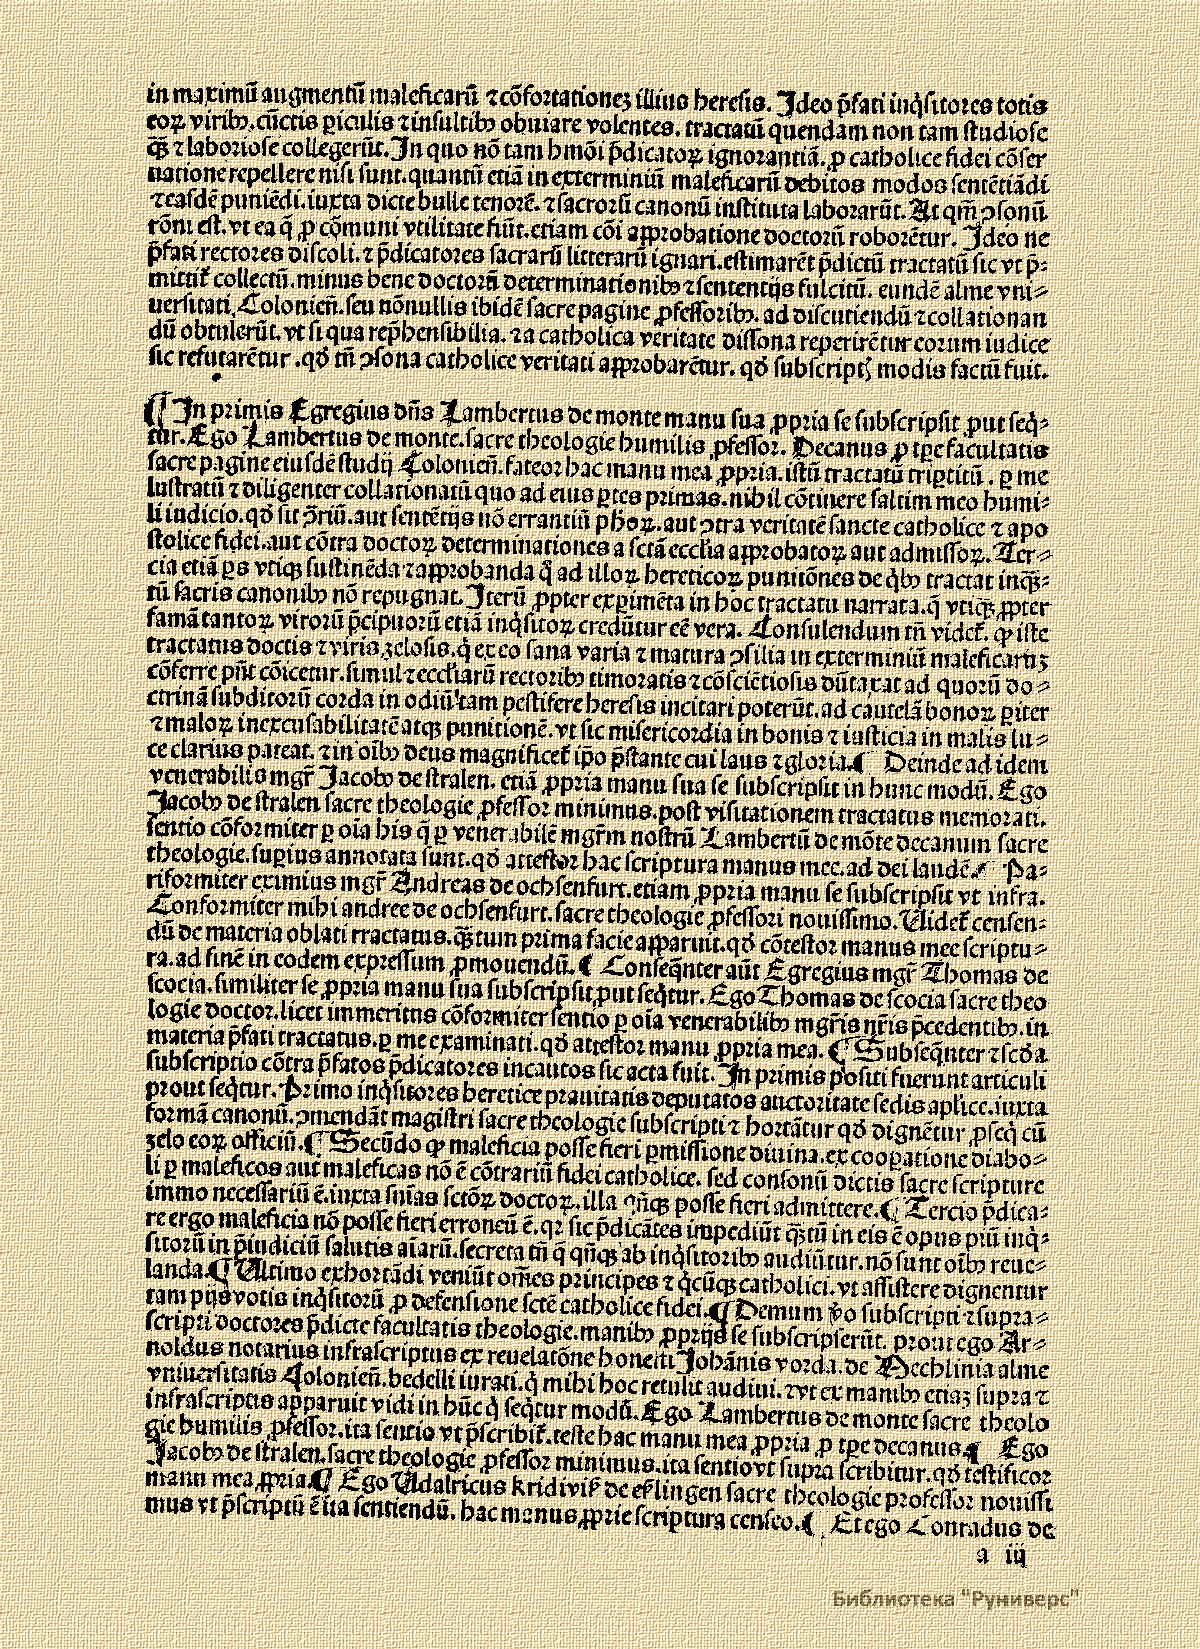 in maximū augmentū maleficarū ⁊ cōfortationeʒ illius heresis. Ideo p̄fati inq̇sitores totis
eoꝝ viribꝰ. cūctis ꝑiculis ⁊ insultibꝰ obuiare volentes. tractatū quendam non tam studiose
qꝫ̄ ⁊ laboriose collegerūt. In quo nō tam hmōi p̄dicatoꝝ ignorantiā. ꝓ catholice fidei cōser
uatione repellere nisi sunt. quantū etiā in exterminiū maleficarū debitos modos sentētiādi
⁊ easdē puniēdi. iuxta dicte bulle tenorē. ⁊ sacrorū canonū instituta laborarūt. At qm̄ ꝯsonū
rōni est. vt ea q̄ ꝓ cōmuni vtilitate fiūt. etiam cōi aꝓprobatione doctorū roborētur. Ideo ne
p̄fati rectores discoli. ⁊ p̄dicatores sacrarū litterarū ignari. estimarēt p̄dictū tractatū sic vt p̄⸗
mittit᷑ collectū. minus bene doctorū determinationibꝰ ⁊ sententijs fulcitū. eundē alme vni⸗
uersitati Colonien̄. seu nōnullis ibidē sacre pagine ꝓfessoribꝰ. ad discutiendū ⁊ collationan
dū obtulerūt. vt si qua rep̄hensibilia. ⁊ a catholica veritate dissona reperirētur eorum iudice
sic refutarētur. qd̓ tn̄ ꝯsona catholice veritati approbarētur. qd̓ subscriptꝭ modis factū fuit.
¶ In primis Egregius dn̄s Lambertus de monte manu sua ꝓpria se subscripsit ꝓut seq̇⸗
tur. Ego Lambertus de monte. sacre theologie humilis ꝓfessor. Decanus ꝓ tꝑe facultatis
sacre pagine eiusdē studij Colonien̄. fateor hac manu mea ꝓpria. istū tractatū triptitū. ꝑ me
lustratū ⁊ diligenter collationatū quo ad eius ꝑtes primas. nihil cōtinere saltim meo humi⸗
li iudicio. qd̓ sit ꝯ̄riū. aut sentētijs nō errantiū ph̄oꝝ. aut ꝯtra veritatē sancte catholice ⁊ apo
stolice fidei. aut cōtra doctoꝝ determinationes a sctā eccl̄ia approbatoꝝ aut admissoꝝ. Ter⸗
cia etiā ꝑs vtiqꝫ sustinēda ⁊ approbanda q̄ ad illoꝝ hereticoꝝ punitōnes de q̇bꝰ tractat inqꝫ̄⸗
tū sacris canonibꝰ nō repugnat. Iterū ꝓpter exꝑimēta in hoc tractatu narrata. q̄ vtiqꝫ ꝓpter
famā tantoꝝ virorū p̄cipuorū etiā inq̇sitoꝝ credūtur eē vera. Consulendum tn̄ videt᷑. ꝙ iste
tractatus doctis ⁊ viris zelosis. q̇ ex eo sana varia ⁊ matura ꝯsilia in exterminiū maleficaruʒ
cōferre pn̄t cōicetur. simul ⁊ eccl̄iarū rectoribꝰ timoratis ⁊ cōsciētiosis dūtaxat ad quorū do⸗
ctrinā subditorū corda in odiū tam pestifere heresis incitari poterūt. ad cautelā bonoꝝ ꝑiter
⁊ maloꝝ inexcusabilitatē atqꝫ punitionē. vt sic misericordia in bonis ⁊ iusticia in malis lu⸗
ce clarius pateat. ⁊ in oībꝰ deus magnificet᷑ ip̄o p̄stante cui laus ⁊ gloria. ¶ Deinde ad idem
venerabilis mgr̄ Jacobꝰ de stralen. etiā ꝓpria manu sua se subscripsit in hunc modū. Ego
Jacobꝰ de stralen sacre theologie ꝓfessor minimus. post visitationem tractatus memorati.
sentio cōformiter ꝑ oīa his q̄ ꝑ venerabilē mgr̄m nostrū Lambertū de mōte decanum sacre
theologie. suꝑius annotata sunt. qd̓ attestor hac scriptura manus mee. ad dei laudē. ¶ Pa⸗
riformiter eximius mgr̄ Andreas de ochsenfurt. etiam ꝓpria manu se subscripsit vt infra.
Conformiter mihi andree de ochsenfurt. sacre theologie ꝓfessori nouissimo. Videt᷑ censen⸗
dū de materia oblati tractatus. qꝫ̄tum prima facie apparuit. qd̓ cōtestor manus mee scriptu⸗
ra. ad finē in eodem expressum ꝓmouendū. ¶ Conseq̄nter aūt Egregius mgr̄ Thomas de
scocia. similiter se ꝓpria manu sua subscripsit ꝓut seq̇tur. Ego Thomas de scocia sacre theo
logie doctor. licet immeritus cōformiter sentio ꝑ oīa venerabilibꝰ mgr̄is nr̄is p̄cedentibꝰ. in
materia p̄fati tractatus. ꝑ me examinati. qd̓ attestor manu ꝓpria mea. ¶ Subseq̄nter ⁊ scd̓a
subscriptio cōtra p̄fatos p̄dicatores incautos sic acta fuit. In primis positi fuerunt articuli
prout seq̇tur. Primo inq̇sitores heretice prauitatis deputatos auctoritate sedis apl̄ice. iuxta
formā canonū. ꝯmendāt magistri sacre theologie subscripti ⁊ hortātur qd̓ dignētur ꝓseq̇ cū
zelo eoꝝ officiū. ¶ Secūdo ꝙ maleficia posse fieri ꝑmissione diuina. ex cooꝑatione diabo⸗
li ꝑ maleficos aut maleficas nō ē cōtrariū fidei catholice. sed consonū dictis sacre scripture
immo necessariū ē. iuxta sn̄ias sctōꝝ doctoꝝ. illa qn̄qꝫ posse fieri admittere. ¶ Tercio p̄dica⸗
re ergo maleficia nō posse fieri erroneū ē. qꝛ sic p̄dicātes impediūt qꝫ̄tū in eis ē opus piū inq̇⸗
sitorū in p̄iudiciū salutis aīarū. secreta tn̄ q̄ qn̄qꝫ ab inq̇sitoribꝰ audiūtur. nō sunt oībꝰ reue⸗
landa. ¶ Vltimo exhortādi veniūt om̄es principes ⁊ q̇cūqꝫ catholici. vt assistere dignentur
tam pijs votis inq̇sitorū ꝓ defensione sctē catholice fidei. ¶ Demum v̓o subscripti ⁊ supra⸗
scripti doctores p̄dicte facultatis theologie. manibꝰ ꝓprijs se subscripserūt. prout ego Ar⸗
noldus notarius infrascriptus ex reuelatōne honesti Johānis vorda. de Mechlinia alme
vniuersitatis Colonien̄. bedelli iurati. q̇ mihi hoc retulit audiui. ⁊ vt ex manibꝰ etiaʒ supra ⁊
infrascriptis apparuit vidi in hūc q̇ seq̇tur modū. Ego Lambertus de monte sacre theolo
gie humilis ꝓfessor. ita sentio vt p̄scribit᷑. teste hac manu mea ꝓpria ꝓ tꝑe decanus. ¶ Ego
Jacobꝰ de stralen. sacre theologie ꝓfessor minimus. ita sentio vt supra scribitur. qd̓ testificor
manu mea ꝓpria. ¶ Ego Vdalricus kridivik̓ de eslingen sacre theologie professor nouissi
mus vt p̄scriptū ē ita sentiendū. hac manus ꝓprie scriptura censeo. ¶ Et ego Conradus de
a iij
Библиотека "Руниверс"